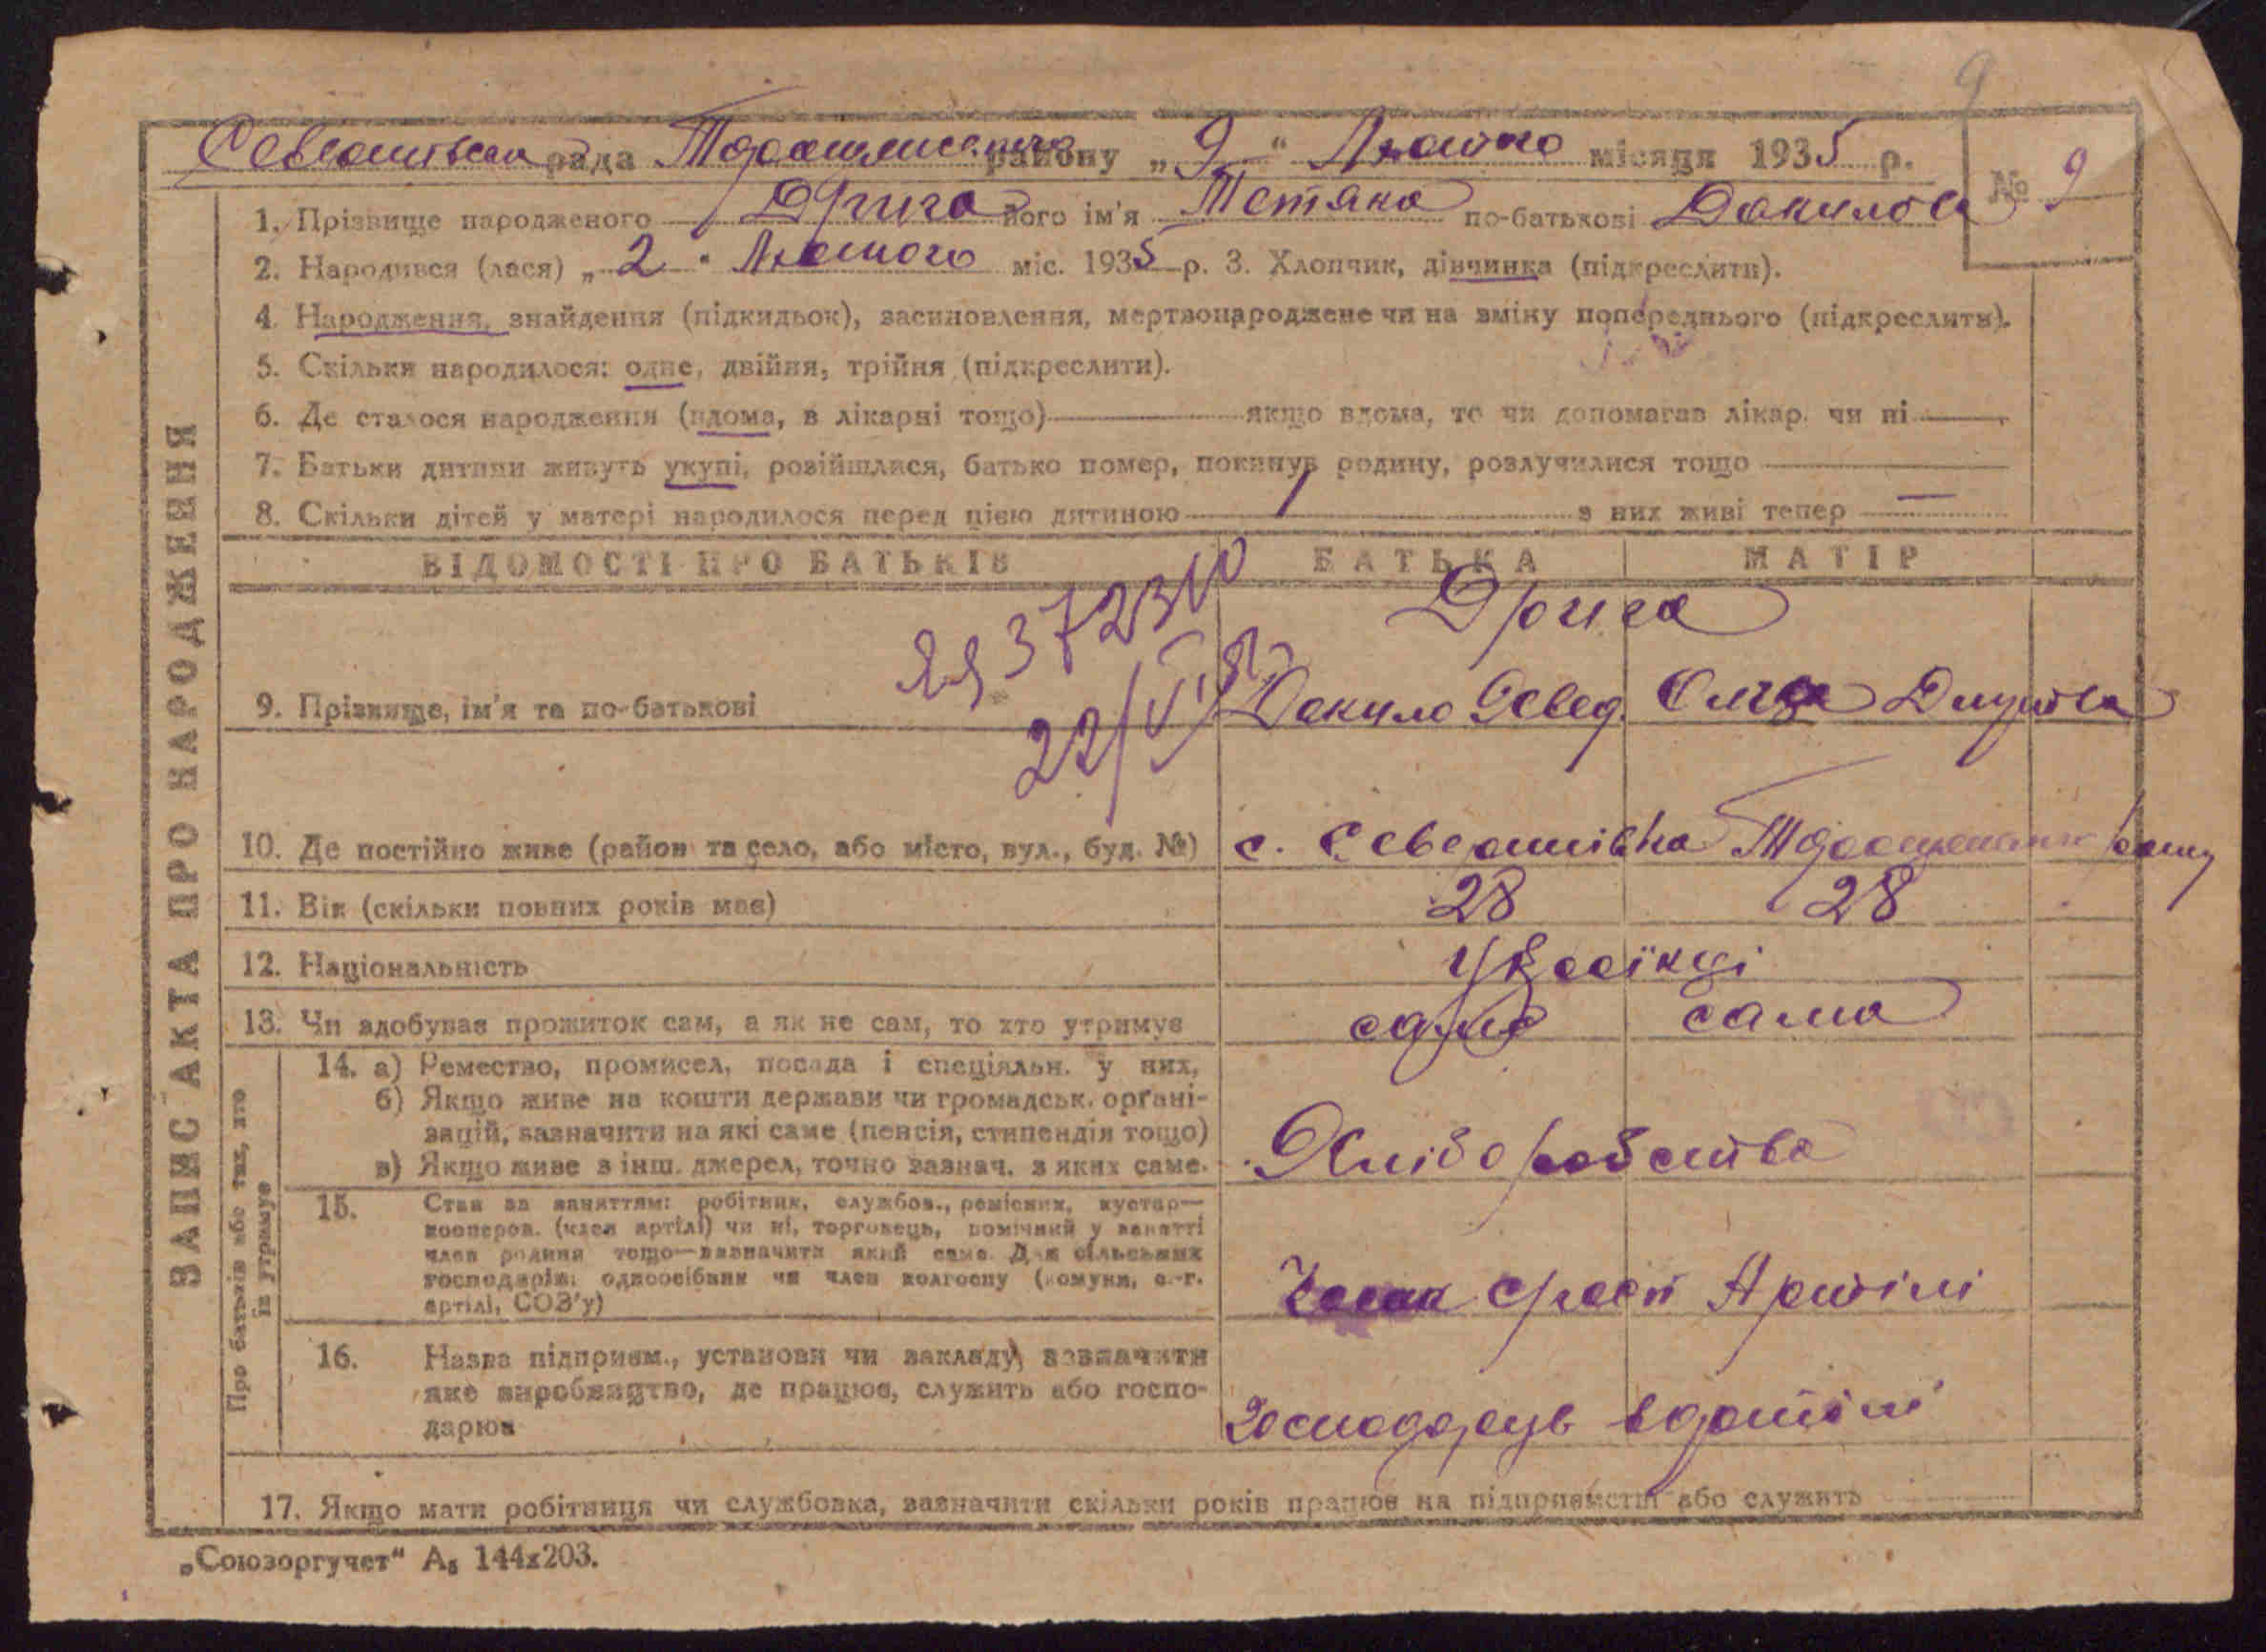 9
рада району „9“ Лютого місяця 1935 р.
№ 9
1. Прізвище народженого Дрига його ім'я Тетяна по-батькові Данилов
2. Народився (лася) „2“ Лютого міс. 1935 р. 3. Хлопчик, дівчинка (підкреслити).
4. Народження, знайдення (підкидьок), засиновлення, мертвонароджене чи на зміну попереднього (підкреслити).
5. Скільки народилося: одне, двійня, трійня (підкреслити).
6. Де сталося народження (вдома, в лікарні тощо) — якщо вдома, то чи допомагав лікар. чи ні —
7. Батьки дитини живуть укупі, розійшлися, батько помер, покинув родину, розлучилися тощо —
8. Скільки дітей у матері народилося перед цією дитиною 1 з них живі тепер —
ЗАПИС АКТА ПРО НАРОДЖЕННЯ
ВІДОМОСТІ ПРО БАТЬКІВ БАТЬКА МАТІР
372310
22/VI
Дрига
9. Прізвище, ім'я та по-батькові Данило Ольга
10. Де постійно живе (район та село, або місто, вул., буд. №) с.
11. Вік (скільки повних років має) 28 28
12. Національність Українці
13. Чи здобуває прожиток сам, а як не сам, то хто утримує сам сама
Про батьків або тих, хто їх утримує
14. а) Ремество, промисел, посада і спеціяльн. у них,
б) Якщо живе на кошти держави чи громадськ. орґані-
зацій, зазначити на які саме (пенсія, стипендія тощо)
в) Якщо живе з інш. джерел, точно зазнач. з яких саме.
Хліборобства
15. Стан за заняттям: робітник, службов., ремісник, кустар—
кооперов. (член артілі) чи ні, торговець, помічний у занятті
член родини тощо—зазначити який саме. Для сільських
господарів: одноосібник чи член колгоспу (комуни, с.-г.
артілі, СОЗ'у)
Артілі
16. Назва підприєм., установи чи закладу, зазначити
яке виробництво, де працює, служить або госпо-
дарює
17. Якщо мати робітниця чи службовка, зазначити скільки років працює на підприємстві або служить
„Союзоргучет“ А₅ 144х203.